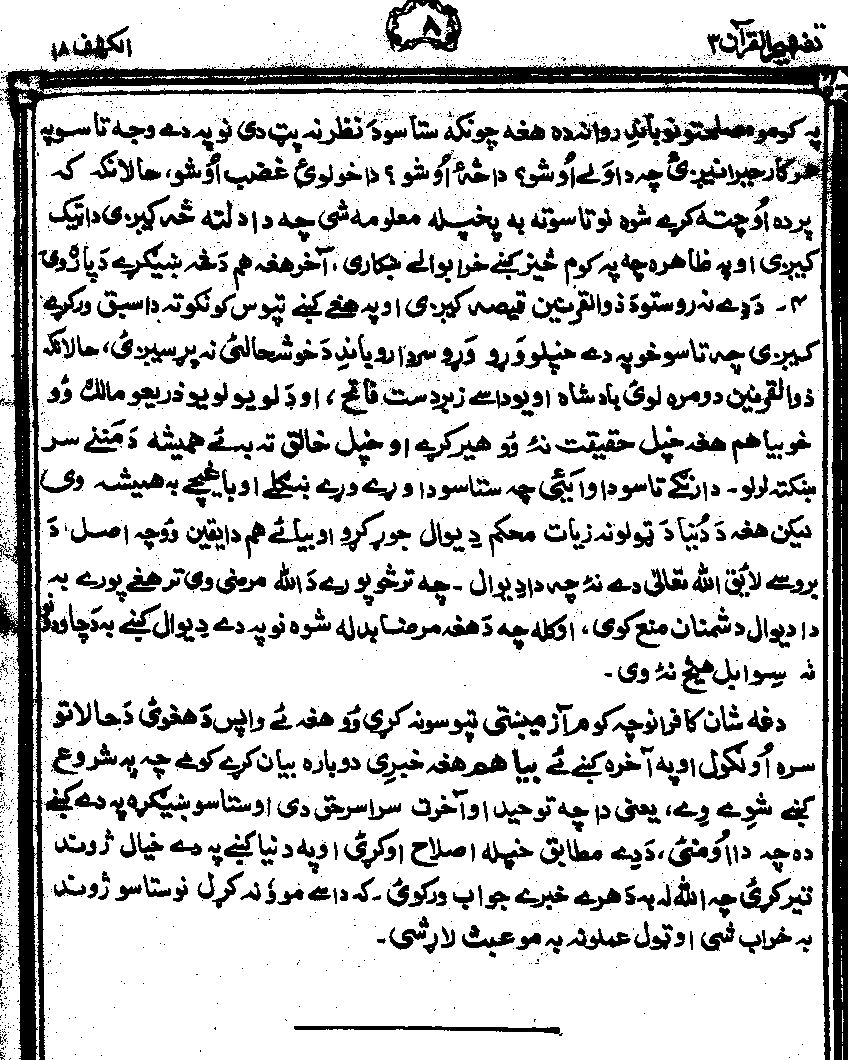 تفهیم القرآن ۳
۸
الکهف ۱۸
په کومو مصلحتونو باندِ روانده هغه چونکه ستاسو دَ نظر نه پټ دی نو په دے وجه تاسو په
هر کار حیرانیږئ چه دا ولے اُوشو؟ دا څۀ اُوشو؟ دا خو لوئ غضب اُوشو، حالانکه که
پرده اُوچته کړے شوه نو تاسو ته به پخپله معلومه شی چه دا دلته څه کیږی دا ټیک
کیږی او په ظاهره چه په کوم څیز کښے خرابوالے ښکاری، آخر هغه هم دَ څه ښیګړے دَ پاره وی
۴ ۔ دَ دے نه روستو دَ ذوالقرنین قیصه کیږی او په هغے کښے تپوس کونکو ته دا سبق ورکړے
کیږی چه تاسو خو په دے خپلو وړو وړو سردارو باندِ دَ خوشحالئ نه پړسیږئ، حالانکه
ذوالقرنین دومره لوئ بادشاه او یو داسے زبردست فاتح، او دَ لویو لویو ذریعو مالک وُو
خو بیا هم هغه خپل حقیقت نۀ وُو هیر کړے او خپل خالق ته ئے همیشه دَ مننے سر
ښکته لرلو ۔ دارنګے تاسو دا وایئ چه ستاسو دا ورے ورے بنګلے او باغیچے به همیشه وی
لیکن هغه دَ دُنیا دَ ټولو نه زیات محکم دِیوال جوړ کړو او بیا ئے هم دا یقین وُو چه اصل دَ
بروسے لائق الله تعالیٰ دے نۀ چه دا دِیوال ۔ چه تر څو پورے دَ الله مرضی وی تر هغے پورے به
دا دیوال دشمنان منع کوی، او کله چه دَ هغه مرضا بدله شوه نو په دے دِیوال کښے به دَ چاودو
نه سِوا بل هیڅ نۀ وی ۔
دغه شان کافرانو چه کوم آزمیښتی تپوسونه کړی وُو هغه ئے واپس دَ هغوئ دَ حالاتو
سره اُولګول او په آخره کښے ئے بیا هم هغه خبرِی دوباره بیان کړے کومے چه په شروع
کښے شوِے وے، یعنی دا چه توحید او آخرت سراسر حق دی او ستاسو ښیګړه په دے کښے
ده چه دا اُومنئ، دَ دے مطابق خپله اصلاح اوکړئ او په دنیا کښے په دے خیال ژوند
تیر کړئ چه الله له به دَ هرے خبرے جواب ورکوئ ۔ که داسے مو ؤ نه کړل نو ستاسو ژوند
به خراب شی او ټول عملونه به مو عبث لاړ شی ۔